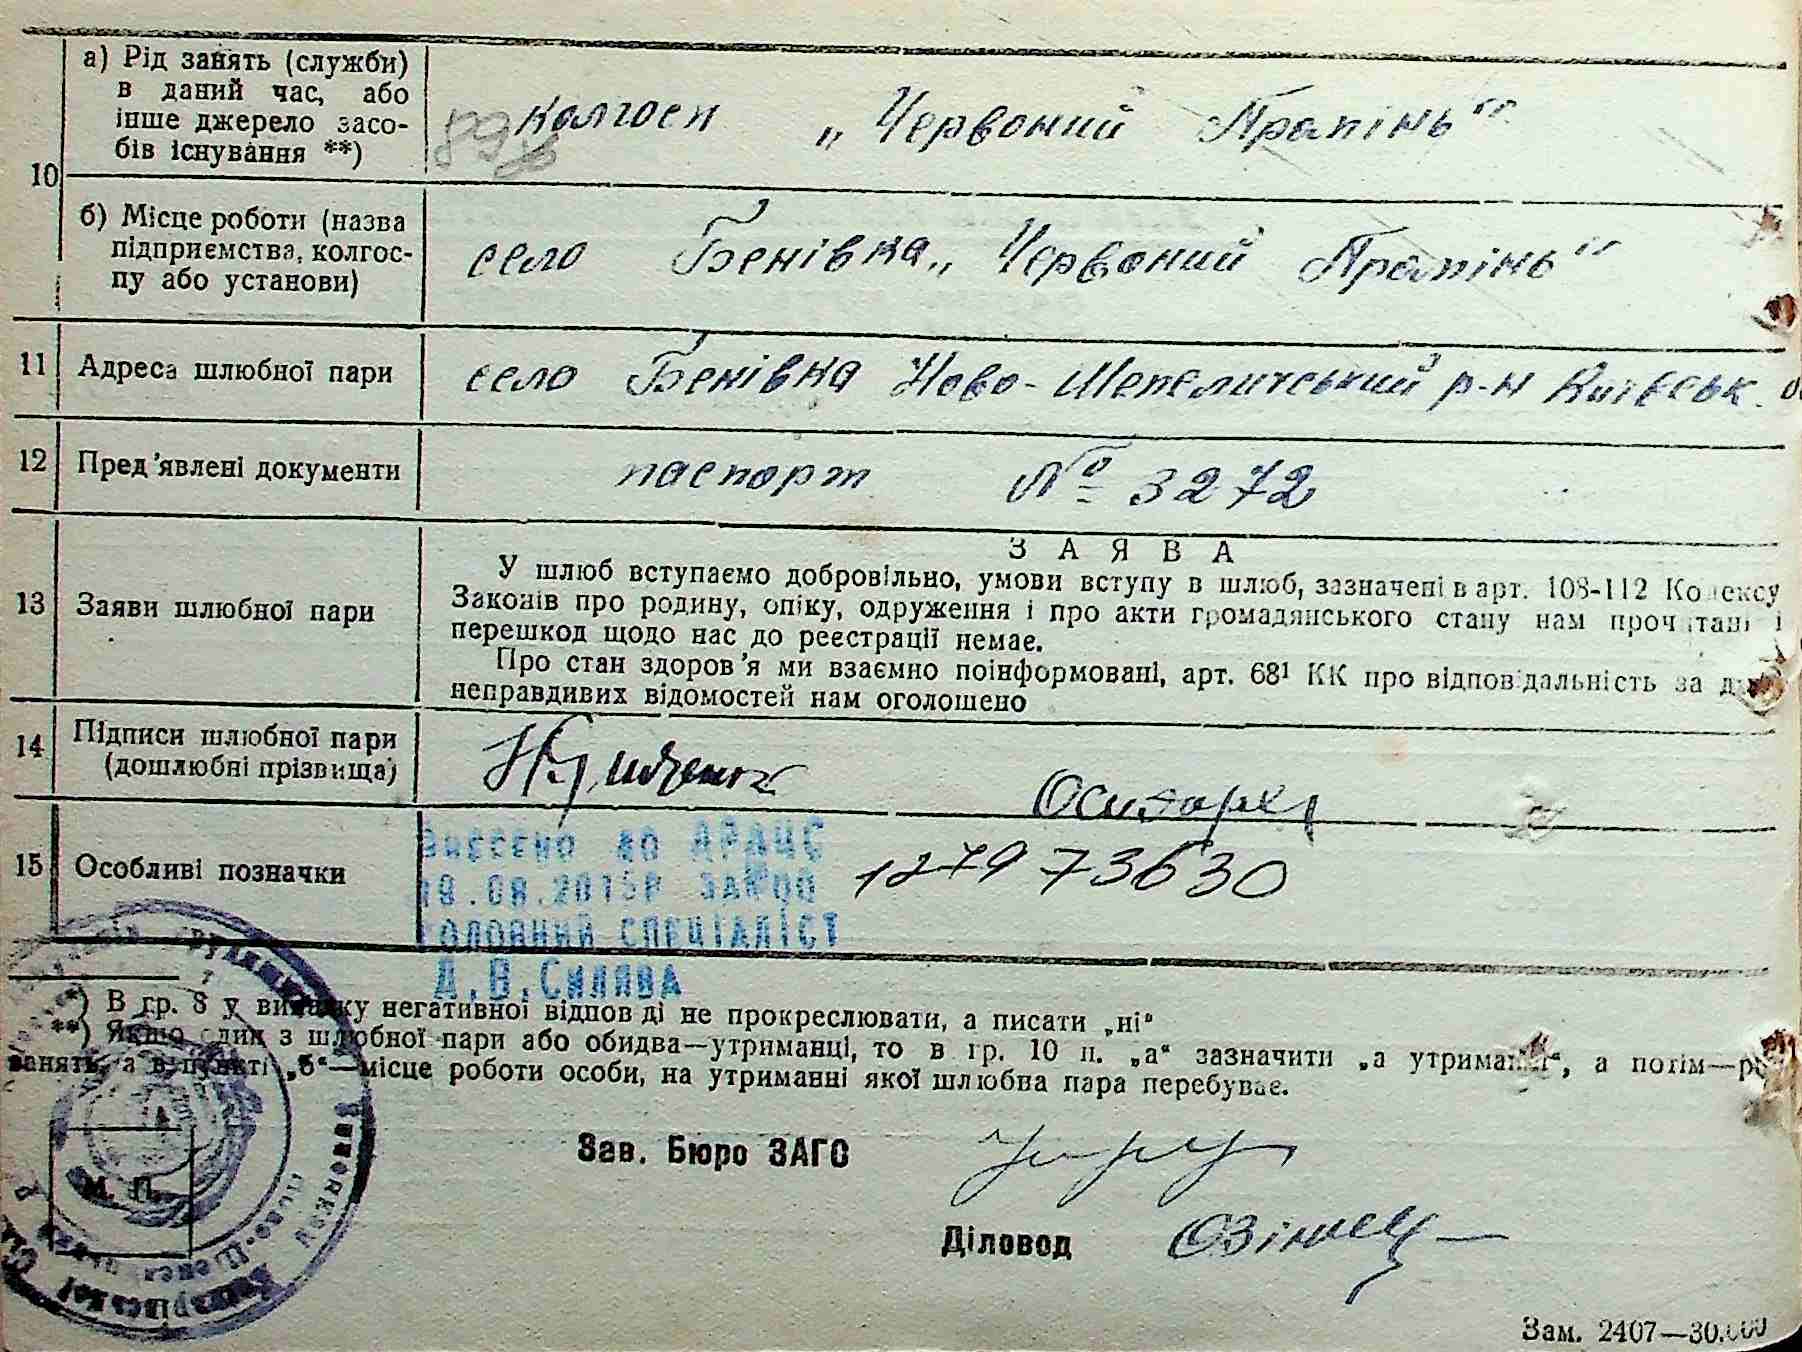 10
а) Рід занять (служби)
в даний час, або
інше джерело засо-
бів існування **)
колгосп „Червоний Прапінь"
б) Місце роботи (назва
підприємства, колгос-
пу або установи)
село Бенівка „Червоний Прапінь"
11 Адреса шлюбної пари
село Бенівка Ново-Шепеличський р-н Київськ.
12 Пред'явлені документи
паспорт № 3272
ЗАЯВА
13 Заяви шлюбної пари
У шлюб вступаємо добровільно, умови вступу в шлюб, зазначені в арт. 108-112 Кодексу
Законів про родину, опіку, одруження і про акти громадянського стану нам прочитані і
перешкод щодо нас до реєстрації немає.
Про стан здоров'я ми взаємно поінформовані, арт. 68¹ КК про відповідальність за
неправдивих відомостей нам оголошено
14 Підписи шлюбної пари
(дошлюбні прізвища)
15 Особливі позначки
Внесено до ДРАЦС
19.08.2015р
головний спеціаліст
Д.В.Силява
127973630
*) В гр. 8 у випадку негативної відповіді не прокреслювати, а писати „ні"
**) Якщо один з шлюбної пари або обидва—утриманці, то в гр. 10 п. „а" зазначити „а утриманні", а потім—
занять, а в пункті „б"—місце роботи особи, на утриманні якої шлюбна пара перебуває.
Зав. Бюро ЗАГС
М. П.
Діловод
Зам. 2407—30.000